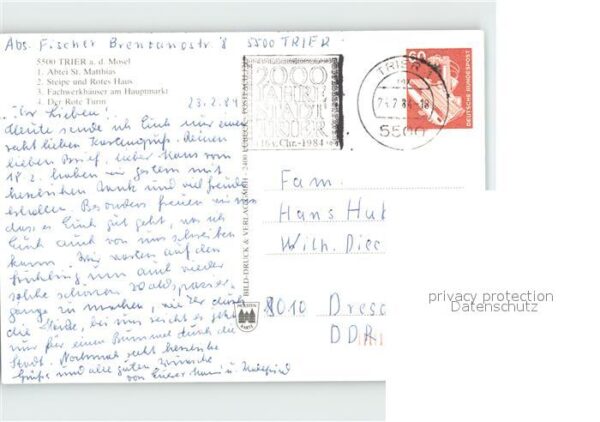 Abs. Fischer Brentanostr. 8 5500 TRIER
5500 TRIER a. d. Mosel
1. Abtei St. Matthias
2. Steipe und Rotes Haus
3. Fachwerkhäuser am Hauptmarkt
4. Der Rote Turm
23.2.84
Ihr Lieben!
Heute sende ich Euch nur einen
recht lieben Kartengruß. Deinen
lieben Brief, lieber Hans vom
18 2. haben wir gestern mit
herzlichem Dank und viel Freude
erhalten. Besonders freuen wir uns
dass es Euch gut geht, was ich
Euch auch von uns schreiben
kann. Wir warten auf den
Frühling um auch wieder
solche schönen Waldspazier-
gänge zu machen, wie Ihr durch
die Heide, bei uns reicht es jetzt
nur für einen Bummel durch die
Stadt. Nochmal recht herzliche
Grüße und alle guten Wünsche
von Eurer u.
BILD-DRUCK & VERLAG GMBH · 2400 LÜBECK · POSTFACH
2000
JAHRE
STADT
TRIER
16 v. Chr. - 1984
TRIER 1
24.2.84-18
5500
60
DEUTSCHE BUNDESPOST
Fam.
Hans Hut
Wilh. Diec
8010 Dresd
DDR
privacy protection
Datenschutz